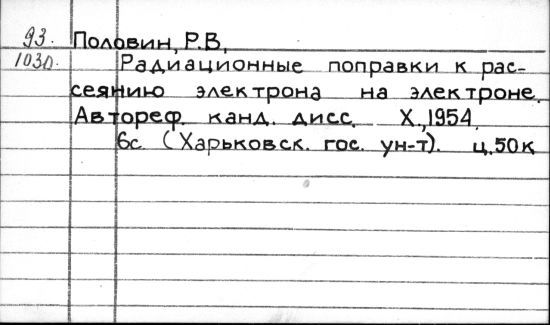 93. Половин, Р.В,
1030. Радиационные поправки к рас-
сеянию электрона на электроне.
Автореф. канд. дисс. Х.,1954.
6с. (Харьковск. гос. ун-т). ц.50к